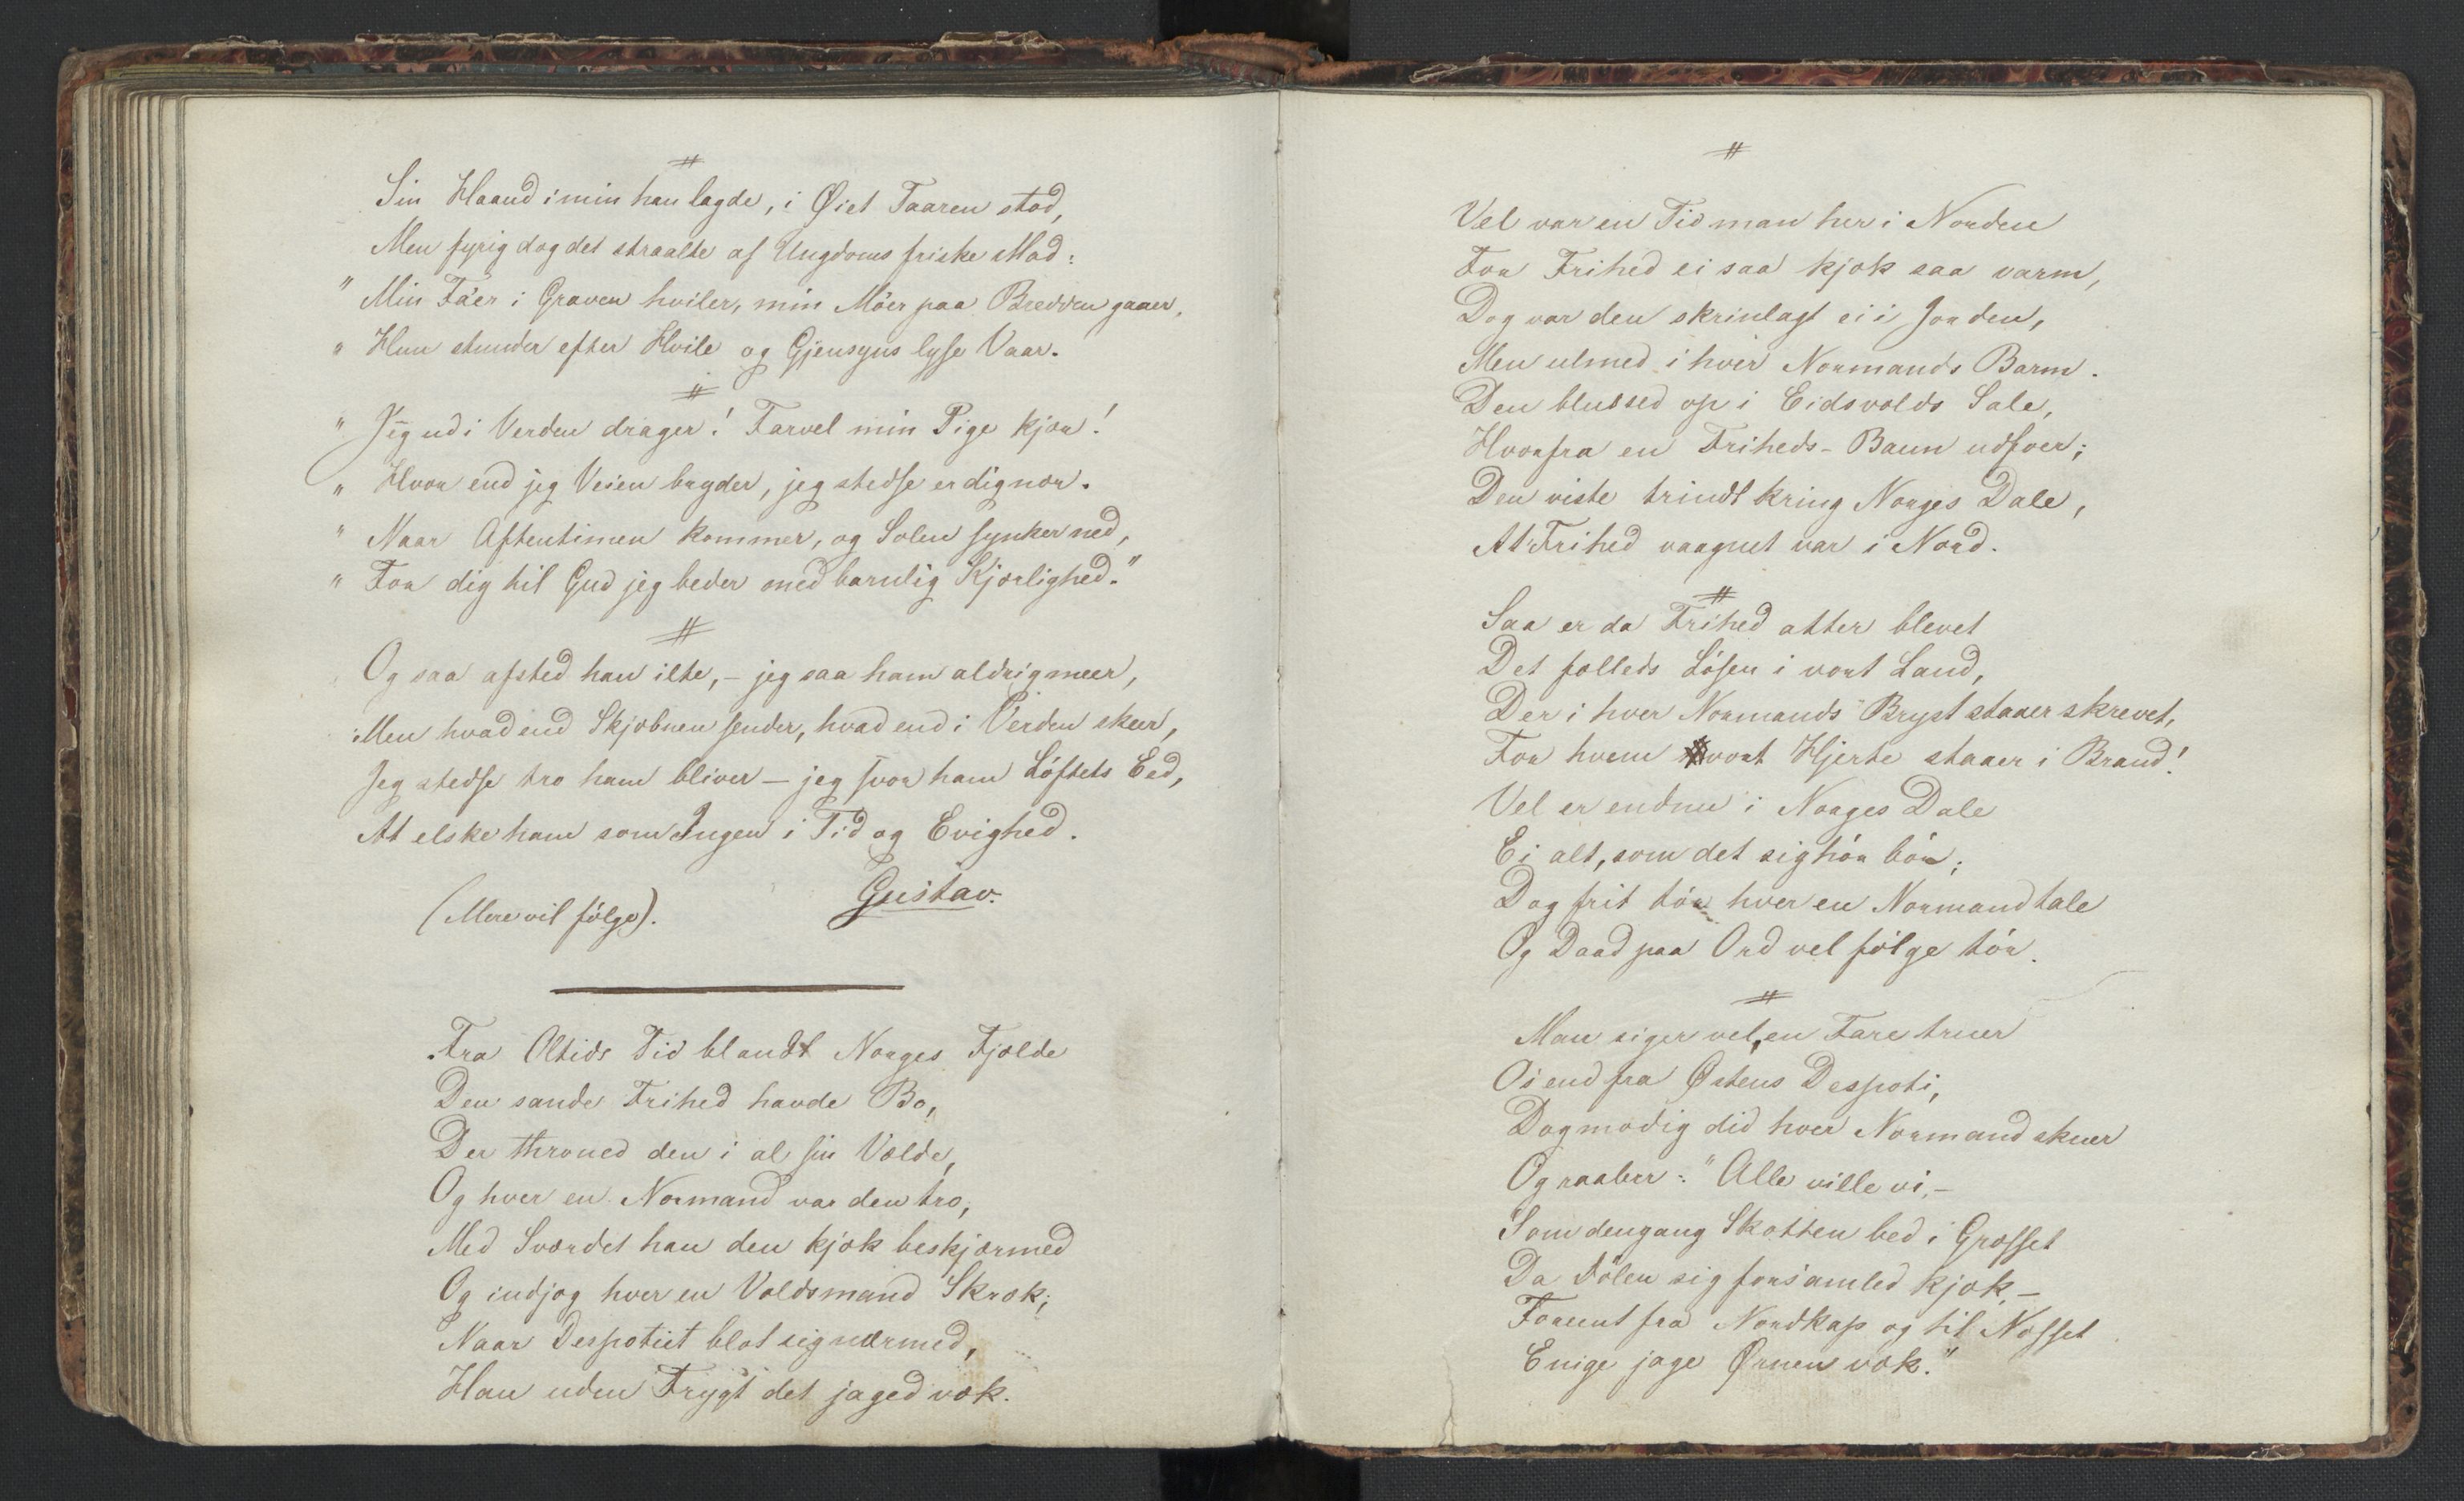 #
Sin Haand i min han lagde, i Øiet Taaren stod,
Men fyrig dog det straalte af Ungdoms friske Mod:
" Min Fáer i Graven hviler, min Móer paa Bredden gaaer,
" Hun stunder efter Hvile og Gjensyns lyse Vaar.
#
" Jeg ud i Verden drager! Farvel min Pige kjær!
" Hvor end jeg Veien bryder, jeg stedse er dig nær.
" Naar Aftentimen kommer, og Solen synker ned,
" For dig til Gud jeg beder med barnlig Kjærlighed."
#
Og saa afsted han ilte, - jeg saa ham aldrig meer,
Men hvad end Skjæbnen sender, hvad end i Verden skeer,
Jeg stedse tro ham bliver - jeg svor ham Löftets Eed,
At elske ham som Ingen i Tid og Evighed.
Gustav.
(Mere vil fölge).
Fra Oltids Tid blandt Norges Fjælde
Den sande Frihed havde Bo,
Der throned den i al sin Vælde,
Og hver en Normand var den tro,
Med Sværdet han den kjæk beskjærmed
Og indjog hver en Voldsmand Skræk;
Naar Despotiet blot sig nærmed,
Han uden Frygt det jaged væk.
#
Vel var en Tid man her i Norden
For Frihed ei saa kjæk saa varm,
Dog var den skrinlagt ei i Jorden,
Men ulmed i hver Normands Barm.
Den blussed op i Eidsvolds Sale,
Hvorfra en Friheds-Baun udfoer;
Den viste trindt kring Norges Dale,
At Frihed vaagnet var i Nord.
#
Saa er da Frihed atter blevet
Det fælleds Lösen i vort Land,
Der i hver Normands Bryst staaer skrevet,
For hvem vort Hjerte staaer i Brand!
Vel er endnu i Norges Dale
Ei alt, som det sig hör bör;
Dog frit tör hver en Normand tale
Og Daad paa Ord vel fölge tör.
#
Man siger vel, en Fare truer
Os end fra Østens Despoti,
Dog modig did hver Normand skuer
Og raaber: "Alle ville vi, -
Som dengang Skotten bed i Græsset
Da Dölen sig forsamled kjæk, -
Foreent fra Nordkap og til Næsset
Enige jage Ørnen væk."